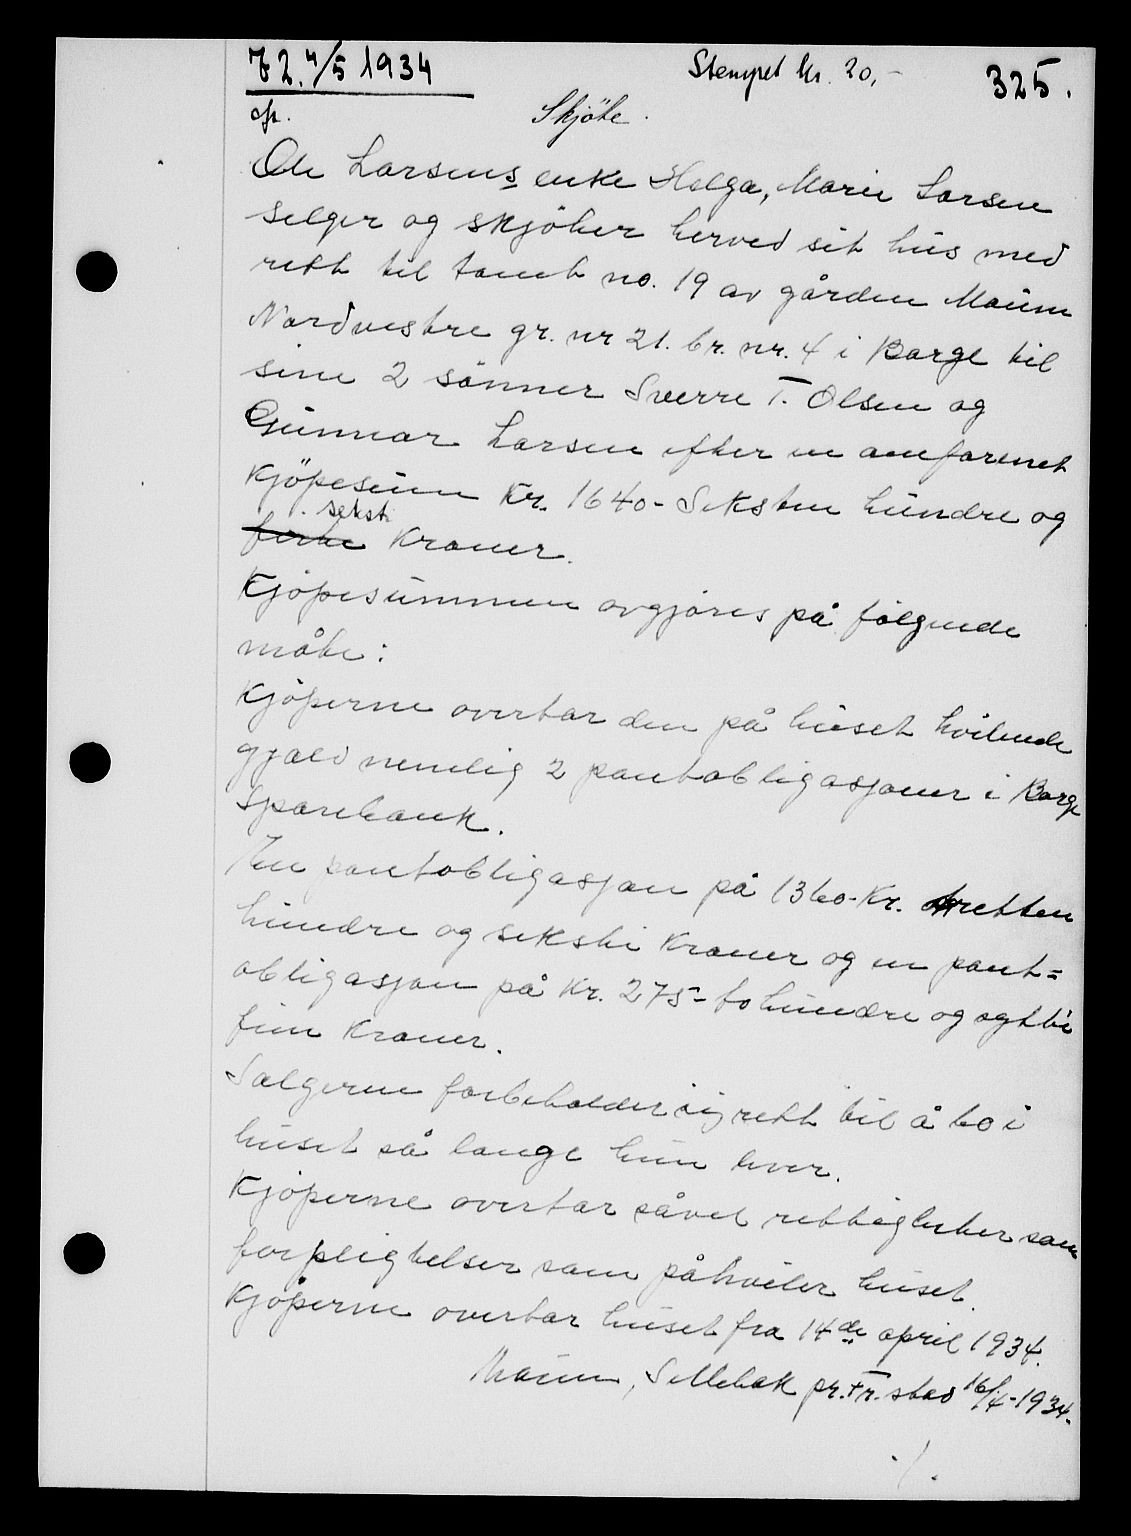 72. 4/5 1934 Stempet kr. 20,- 325.
Skjöte.
Ole Larsens enke Helga, Marie Larsen
selger og skjöter herved sit hus med
rett til tomt no. 19 av gården Maum
Nordvestre gr. nr 21. br. nr. 4 i Borge til
sine 2 sönner Sverre T. Olsen og
Gunnar Larsen efter en omforenet
kjöpesum Kr. 1640- Seksten hundre og
seksti
förti Kroner.
Kjöpesummen avgjöres på fölgende
måte:
Kjöperne overtar den på huset hvilende
gjæld nemlig 2 pantobligasjoner i Borge
Sparebank.
En pantobligasjon på 1360-Kr. tretten
hundre og seksti Kroner og en pant=
obligasjon på Kr. 275- to hundre og sytti
fem Kroner.
Selgerne forbeholder sig rett til å bo i
huset så lange hun lever.
Kjöperne overtar såvel rettigheter som
forpligtelser som påhviler huset.
Kjöperne overtar huset fra 14de april 1934.
Maum, Sellebak pr. Fr.stad 16/4-1934-
./.